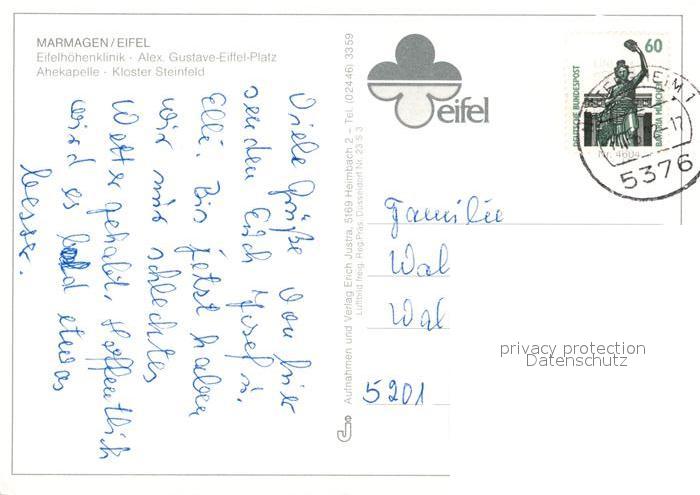 MARMAGEN/EIFEL
Eifelhöhenklinik · Alex. Gustave-Eiffel-Platz
Ahekapelle · Kloster Steinfeld
Viele Grüße von hier
senden Euch Josef u.
Elli. Bis jetzt haben
wir nur schlechtes
Wetter gehabt. Hoffentlich
wird es bald etwas
besser.
Aufnahmen und Verlag Erich Justra, 5169 Heimbach 2 – Tel. (02446) 3359
Luftbild freig. Reg. Präs. Düsseldorf Nr. 23 S 3
eifel
60
DEUTSCHE BUNDESPOST
BAVARIA MÜNCHEN
5376
Nr. 4604
Familie
Wal
Wal
5201
privacy protection
Datenschutz